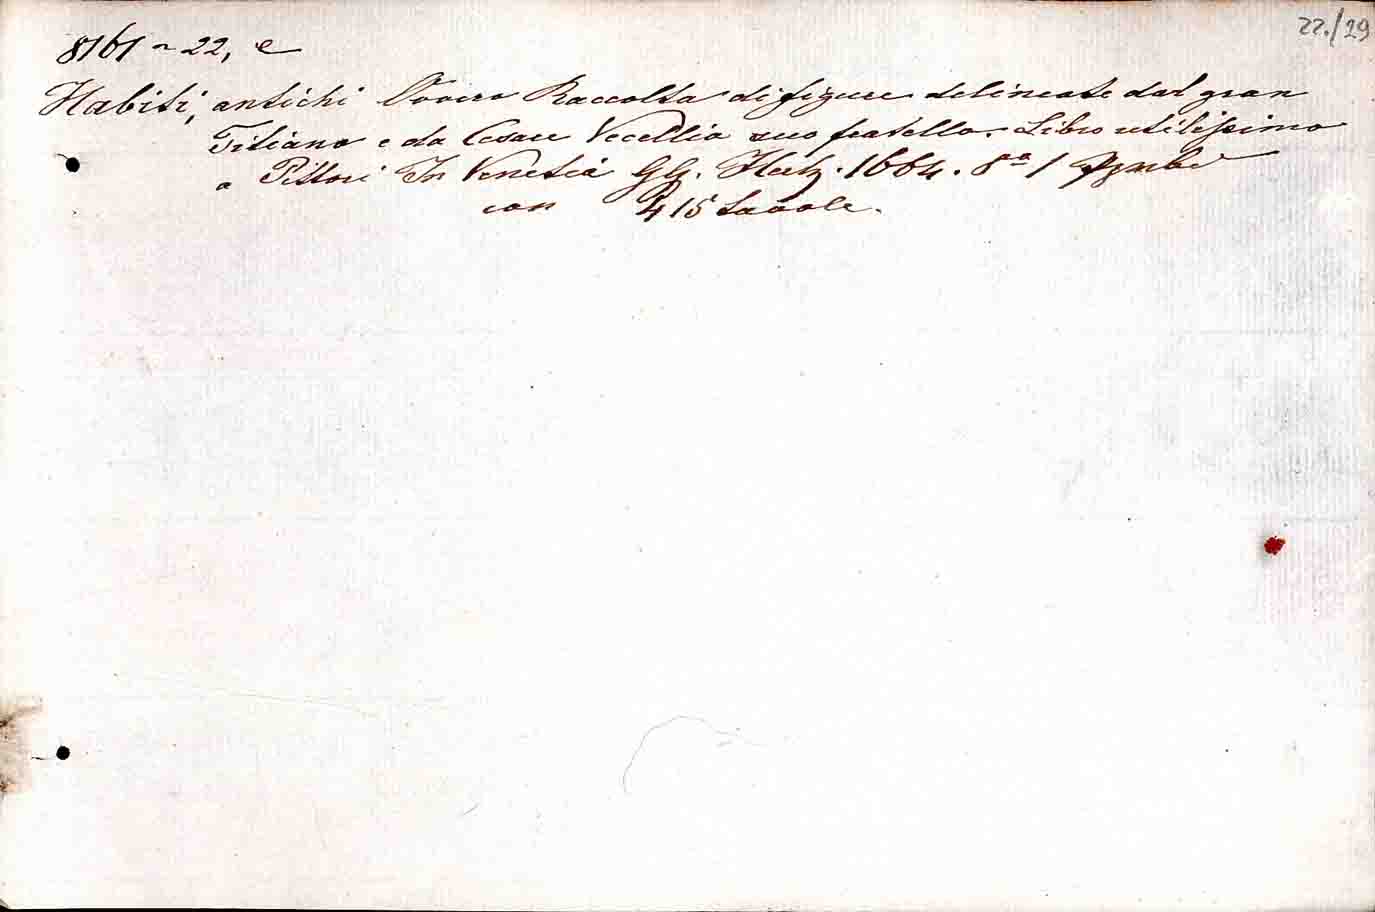 22./29
8161-22, e
Habiti, antichi Overo Raccolta di figure delineate dal gran
Titiano e da Cesare Vecellio suo fratello. Libro utilissimo
a Pittori In Venetia Hertz. 1664. 8º 1
con 415 tavole.